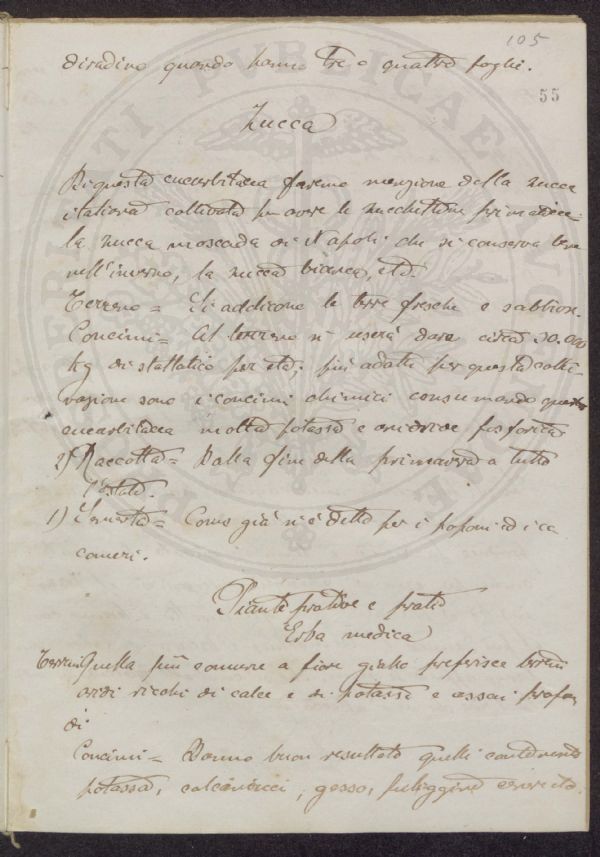 105
diradino quando hanno tre o quattro foglie.
55
Zucca
Di questa cucurbitacea faremo menzione della zucca
italiana coltivata per avere le zucchettine primaticce
la zucca moscada di Napoli che si conserva bene
nell'inverno, la zucca bianca, etc.
Terreno = Si addicono le terre fresche e sabbiose.
Concimi = Al terreno si userà dare circa 30.000
kg di stallatico per eta; più adatti per questa colti-
vazione sono i concimi chimici consumando questa
cucurbitacea molta potassa e anidride fosforica
2) Raccolta = Dalla fine della primavera a tutta
l'estate.
1) Semente = Come già si è detto per i poponi ed i co
comeri.
Piante prative e prati
Erba medica
Terreni Quella più comune a fiore giallo preferisce terreni
aridi ricchi di calce e di potassa e assai profon
di
Concimi = Danno buon resultato quelli contenenti
potassa, calcinacci, gesso, fuliggine